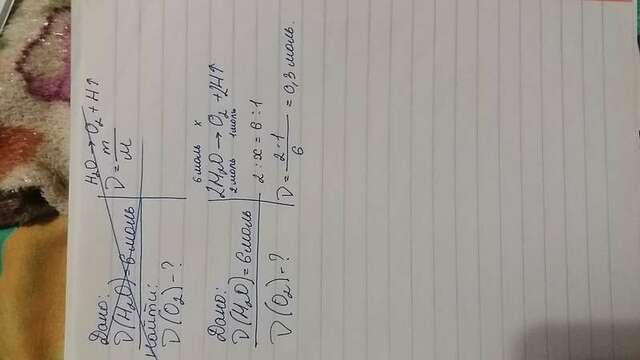 Дано:
D(H₂O) = 6 моль
Найти:
D(O₂) - ?
H₂O → O₂ + H↑
D = m/M
Дано:
D(H₂O) = 6 моль
D(O₂) - ?
6 моль x
2H₂O → O₂ + 2H↑
2 моль 1 моль
2 · x = 6 : 1
D = 2·1/6 = 0,3 моль.